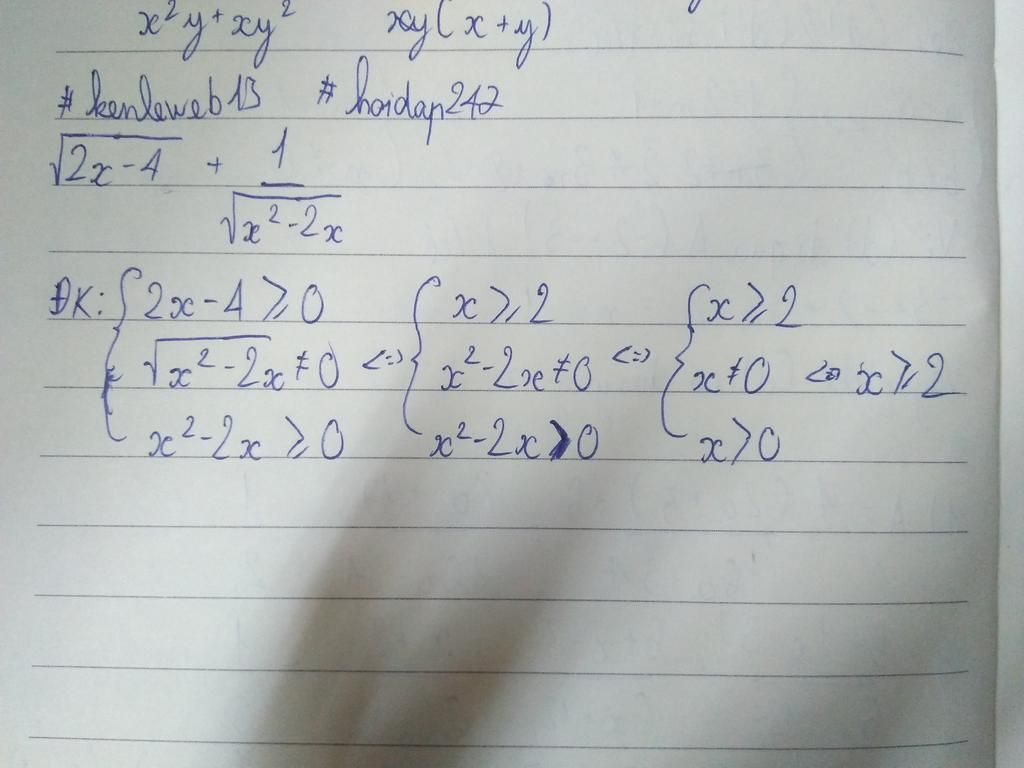 x²y + xy² xy(x+y)
# kenleweb13 # hoidap247
√(2x-4) + 1/√(x²-2x)
ĐK: { 2x-4 ⩾ 0 { x ⩾ 2 { x ⩾ 2
√(x²-2x) ≠ 0 <=> x²-2x ≠ 0 <=> x ≠ 0 <=> x ⩾ 2
x²-2x ⩾ 0 x²-2x > 0 x > 0